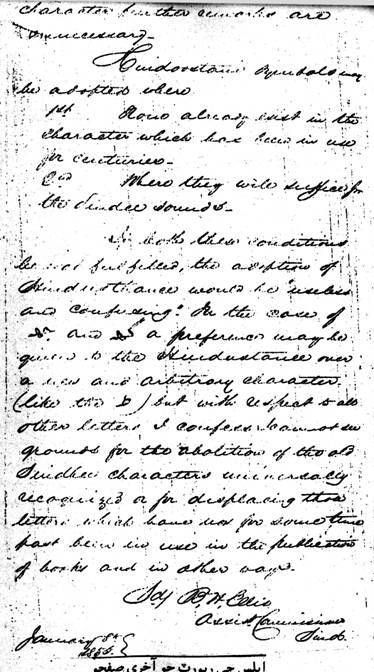 character further remarks are
unnecessary.
Hindoostani Symbols may
be adopted where
1st None already exist in the
character which has been in use
for centuries.
2nd Where they will suffice for
the Sindee sounds.
If both these conditions
be not fulfilled, the adoption of
Hindusthanee would be "useless
and confusing". In the case of
and a preference may be
given to the Hindustanee over
a new and arbitrary character
(like the ) but with respect to all
other letters I confess I cannot see
grounds for the abolition of the old
Sindhee characters universally
recognized or for displacing those
letters which have now for some time
past been in use in the publication
of books and in other ways.
Sd/ B. H. Ellis
Assist Commissioner
Sind.
January 8th
1853.
ايلس جي رپورٽ جو آخري صفحو